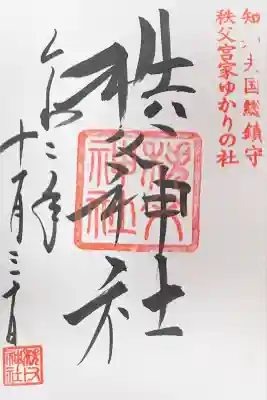 知知夫国総鎮守
秩父宮家ゆかりの社
秩父神社
令和二年
十一月三十日
秩父神社
秩父神社